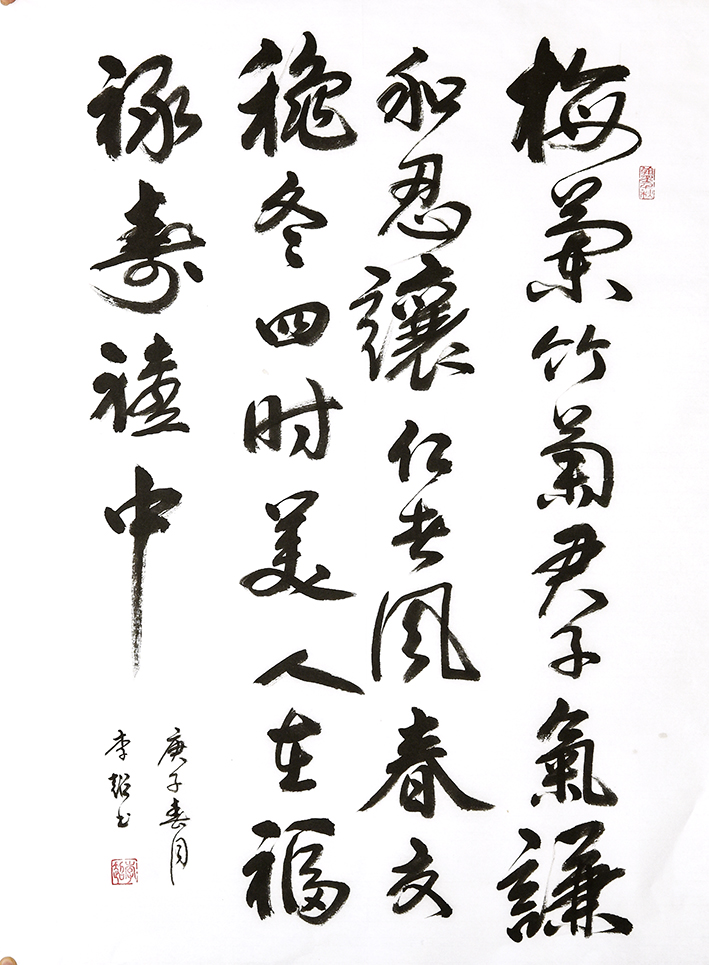 梅蘭竹菊君子氣謙
和忍讓仁者風春夏
穐冬四时美人在福
禄寿禧中
庚子春月
李超书